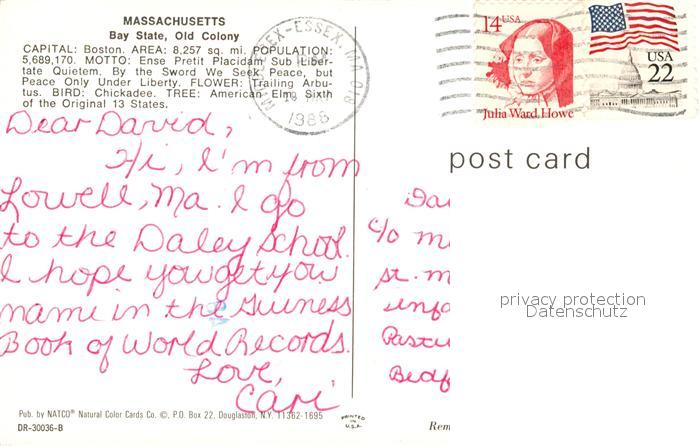 MASSACHUSETTS
Bay State, Old Colony
CAPITAL: Boston. AREA: 8,257 sq. mi. POPULATION:
5,689,170. MOTTO: Ense Pretit Placidam Sub Liber-
tate Quietem. By the Sword We Seek Peace, but
Peace Only Under Liberty. FLOWER: Trailing Arbu-
tus. BIRD: Chickadee. TREE: American Elm. Sixth
of the Original 13 States.
Dear David,
Hi, I'm from
Lowell, Ma. I go
to the Daley School.
I hope you get you
nami in the Guiness
Book of World Records.
Love,
Cari
Pub. by NATCO® Natural Color Cards Co. ©, P.O. Box 22, Douglaston, N.Y. 11362-1695
DR-30036-B
PRINTED
IN
U.S.A.
MIDDLESEX-ESSEX, MA 018
1986
14 USA
Julia Ward Howe
USA
22
post card
c/o m
st. m
Bedf
Rem
privacy protection
Datenschutz